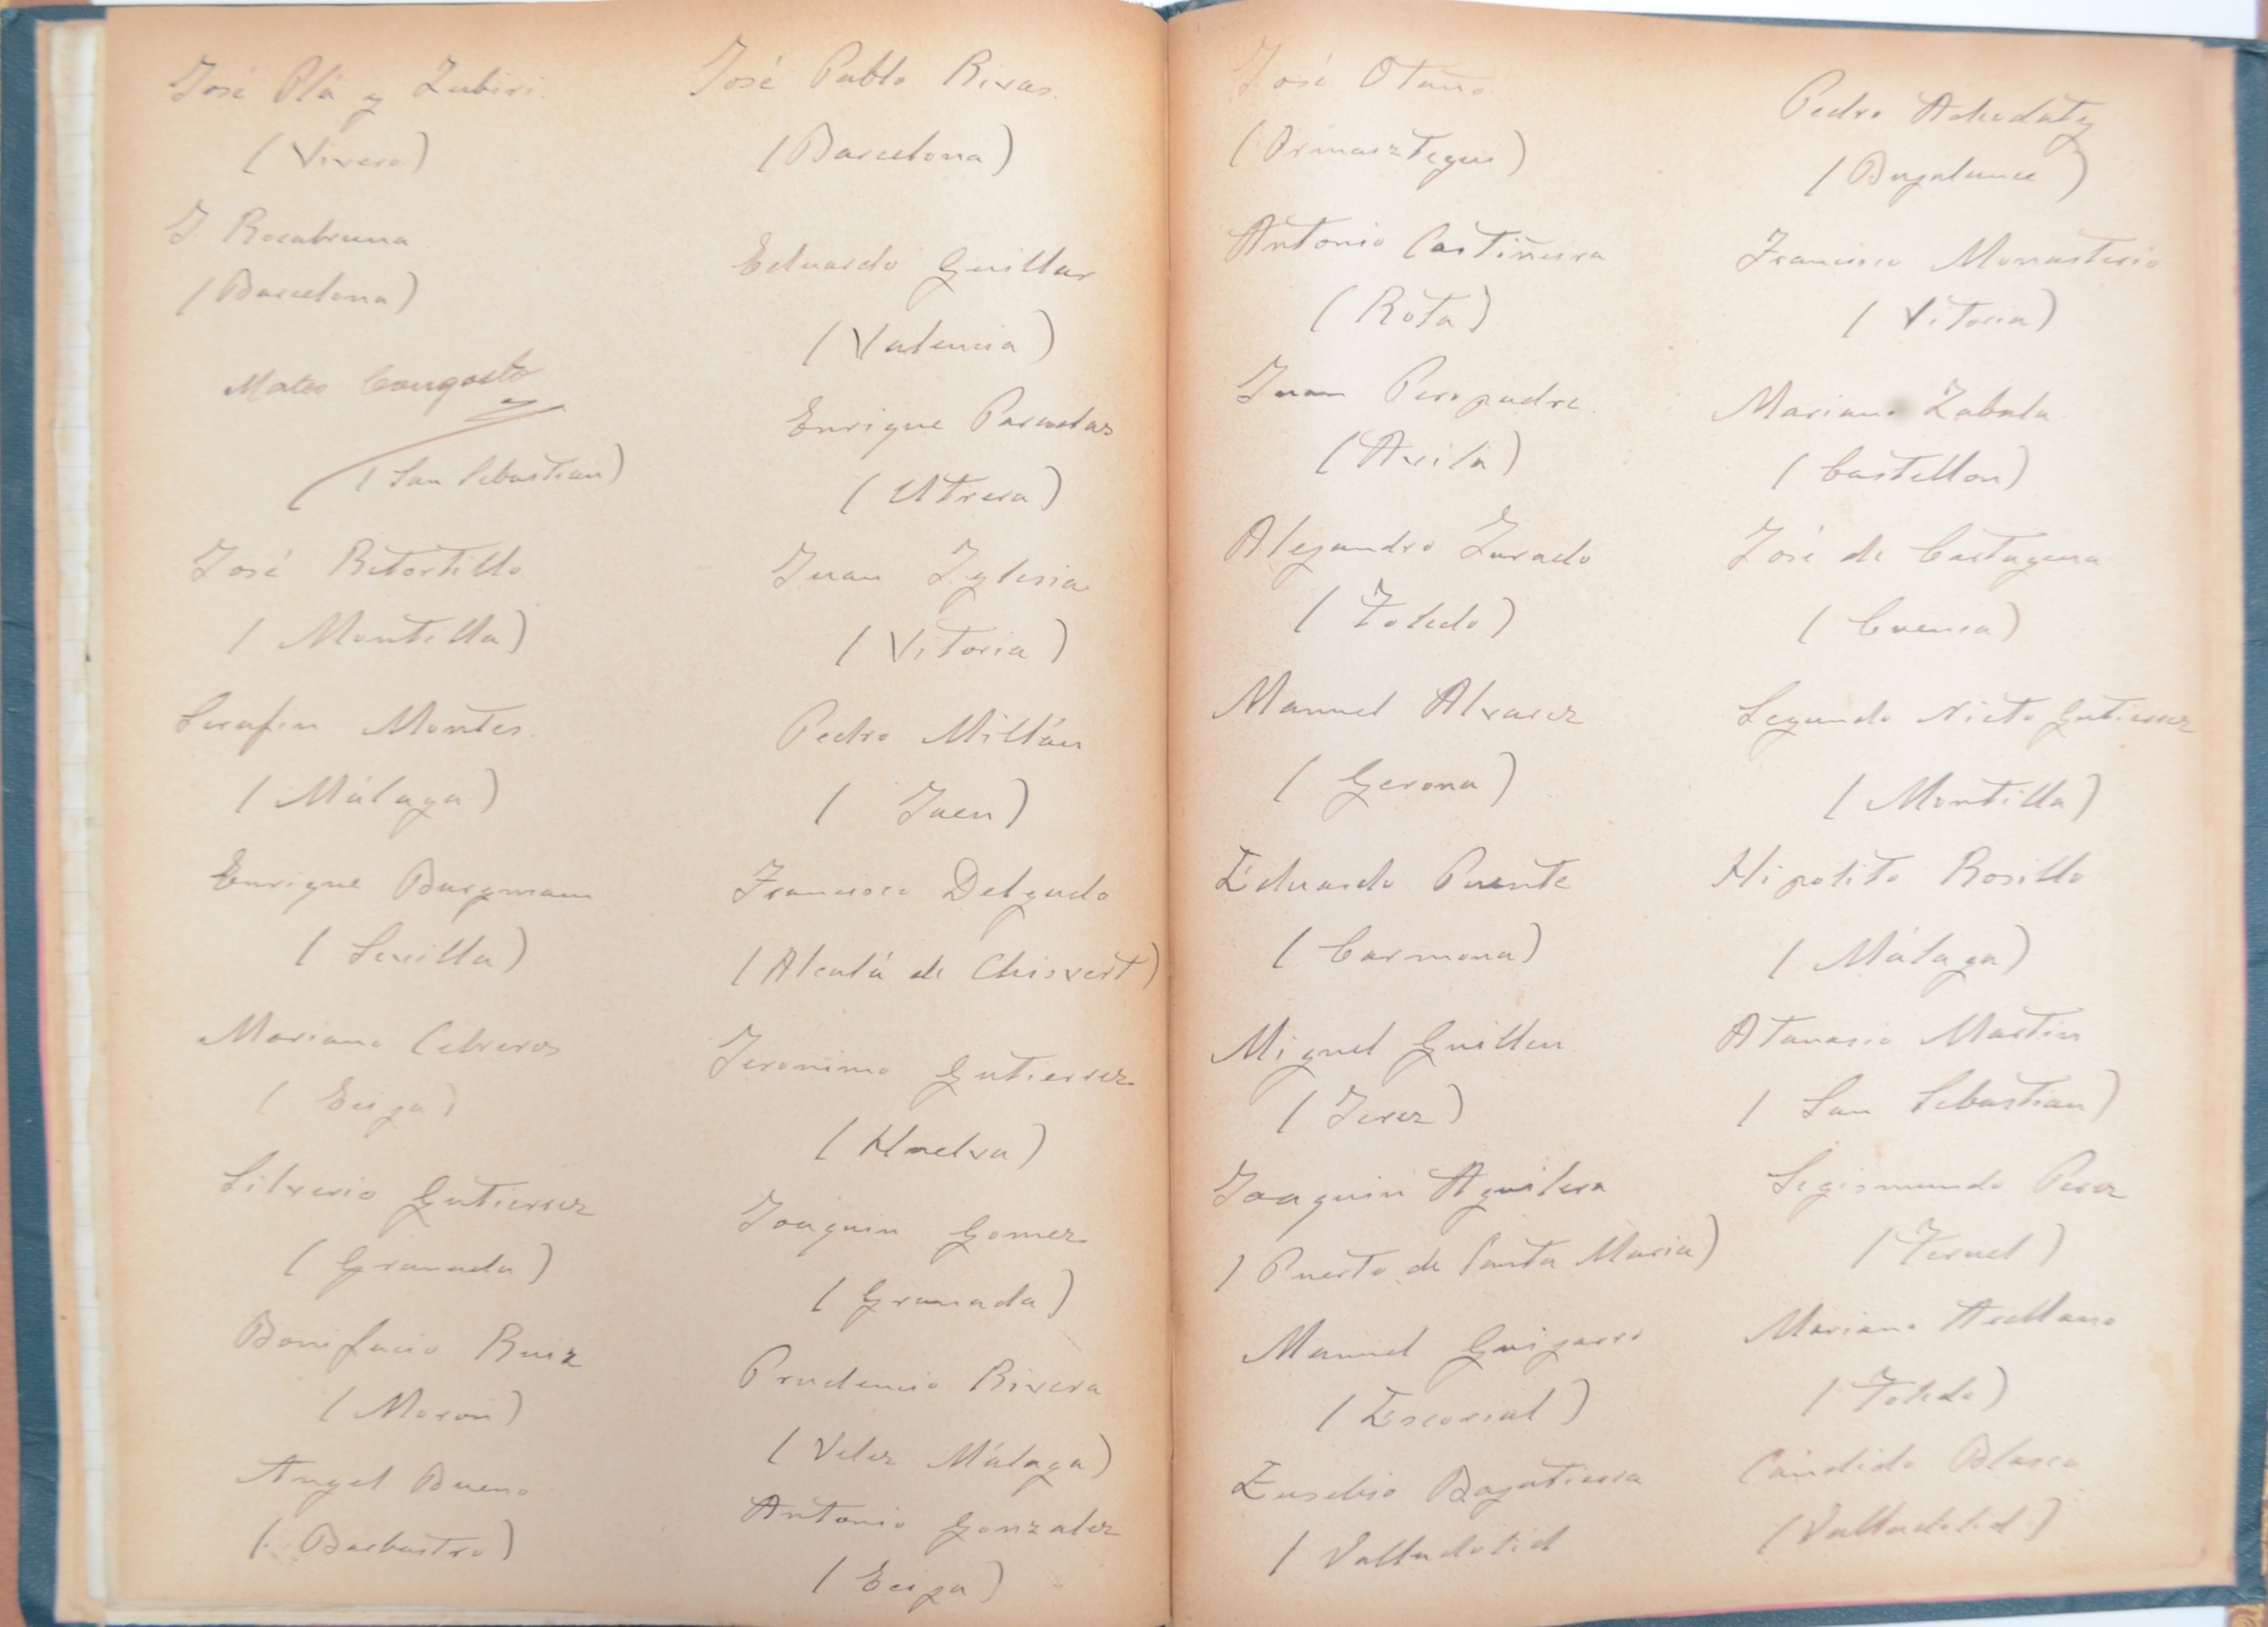 José Plá y Zubiri.
(Vivero)
J. Rocabruna
(Barcelona)
Mateo Congosto
(San Sebastian)
José Retortillo
(Montilla)
Serafin Montes.
(Málaga)
Enrique Burgmann
(Sevilla)
Mariano Cebreros
(Ecija)
Silverio Gutierrez
(Granada)
Bonifacio Ruiz
(Moron)
Angel Bueno
(Barbastro)
José Pablo Rivas.
(Barcelona)
Eduardo Guillar
(Valencia)
Enrique Paradas
(Utrera)
Juan Iglesia
(Vitoria)
Pedro Millán
(Jaen)
Francisco Delgado
(Alcalá de Chisvert)
Jeronimo Gutierrez
(Huelva)
Joaquin Gomez
(Granada)
Prudencio Rivera
(Velez Málaga)
Antonio Gonzalez
(Ecija)
José Otaño
(Ormaiztegui)
Antonio Castiñeira
(Rota)
Juan Peropadre.
(Avila)
Alejandro Jurado
(Toledo)
Manuel Alvarez
(Gerona)
Eduardo Puente
(Carmona)
Miguel Guillen
(Jerez)
Joaquin Aguilera
(Puerto de Santa Maria)
Manuel Guijarro
(Escorial)
Eusebio Bagatierra
(Valladolid
Pedro
(Bujalance)
Francisco Monasterio
(Vitoria)
Mariano Zabala
(Castellon)
José de Cartagena
(Cuenca)
Segundo Nieto Gutierrez
(Montilla)
Hipolito Rosillo
(Málaga)
Atanasio Martin
(San Sebastian)
Segismundo Perez
(Teruel)
Mariano Arellano
(Toledo)
Cándido Blasco
(Valladolid)